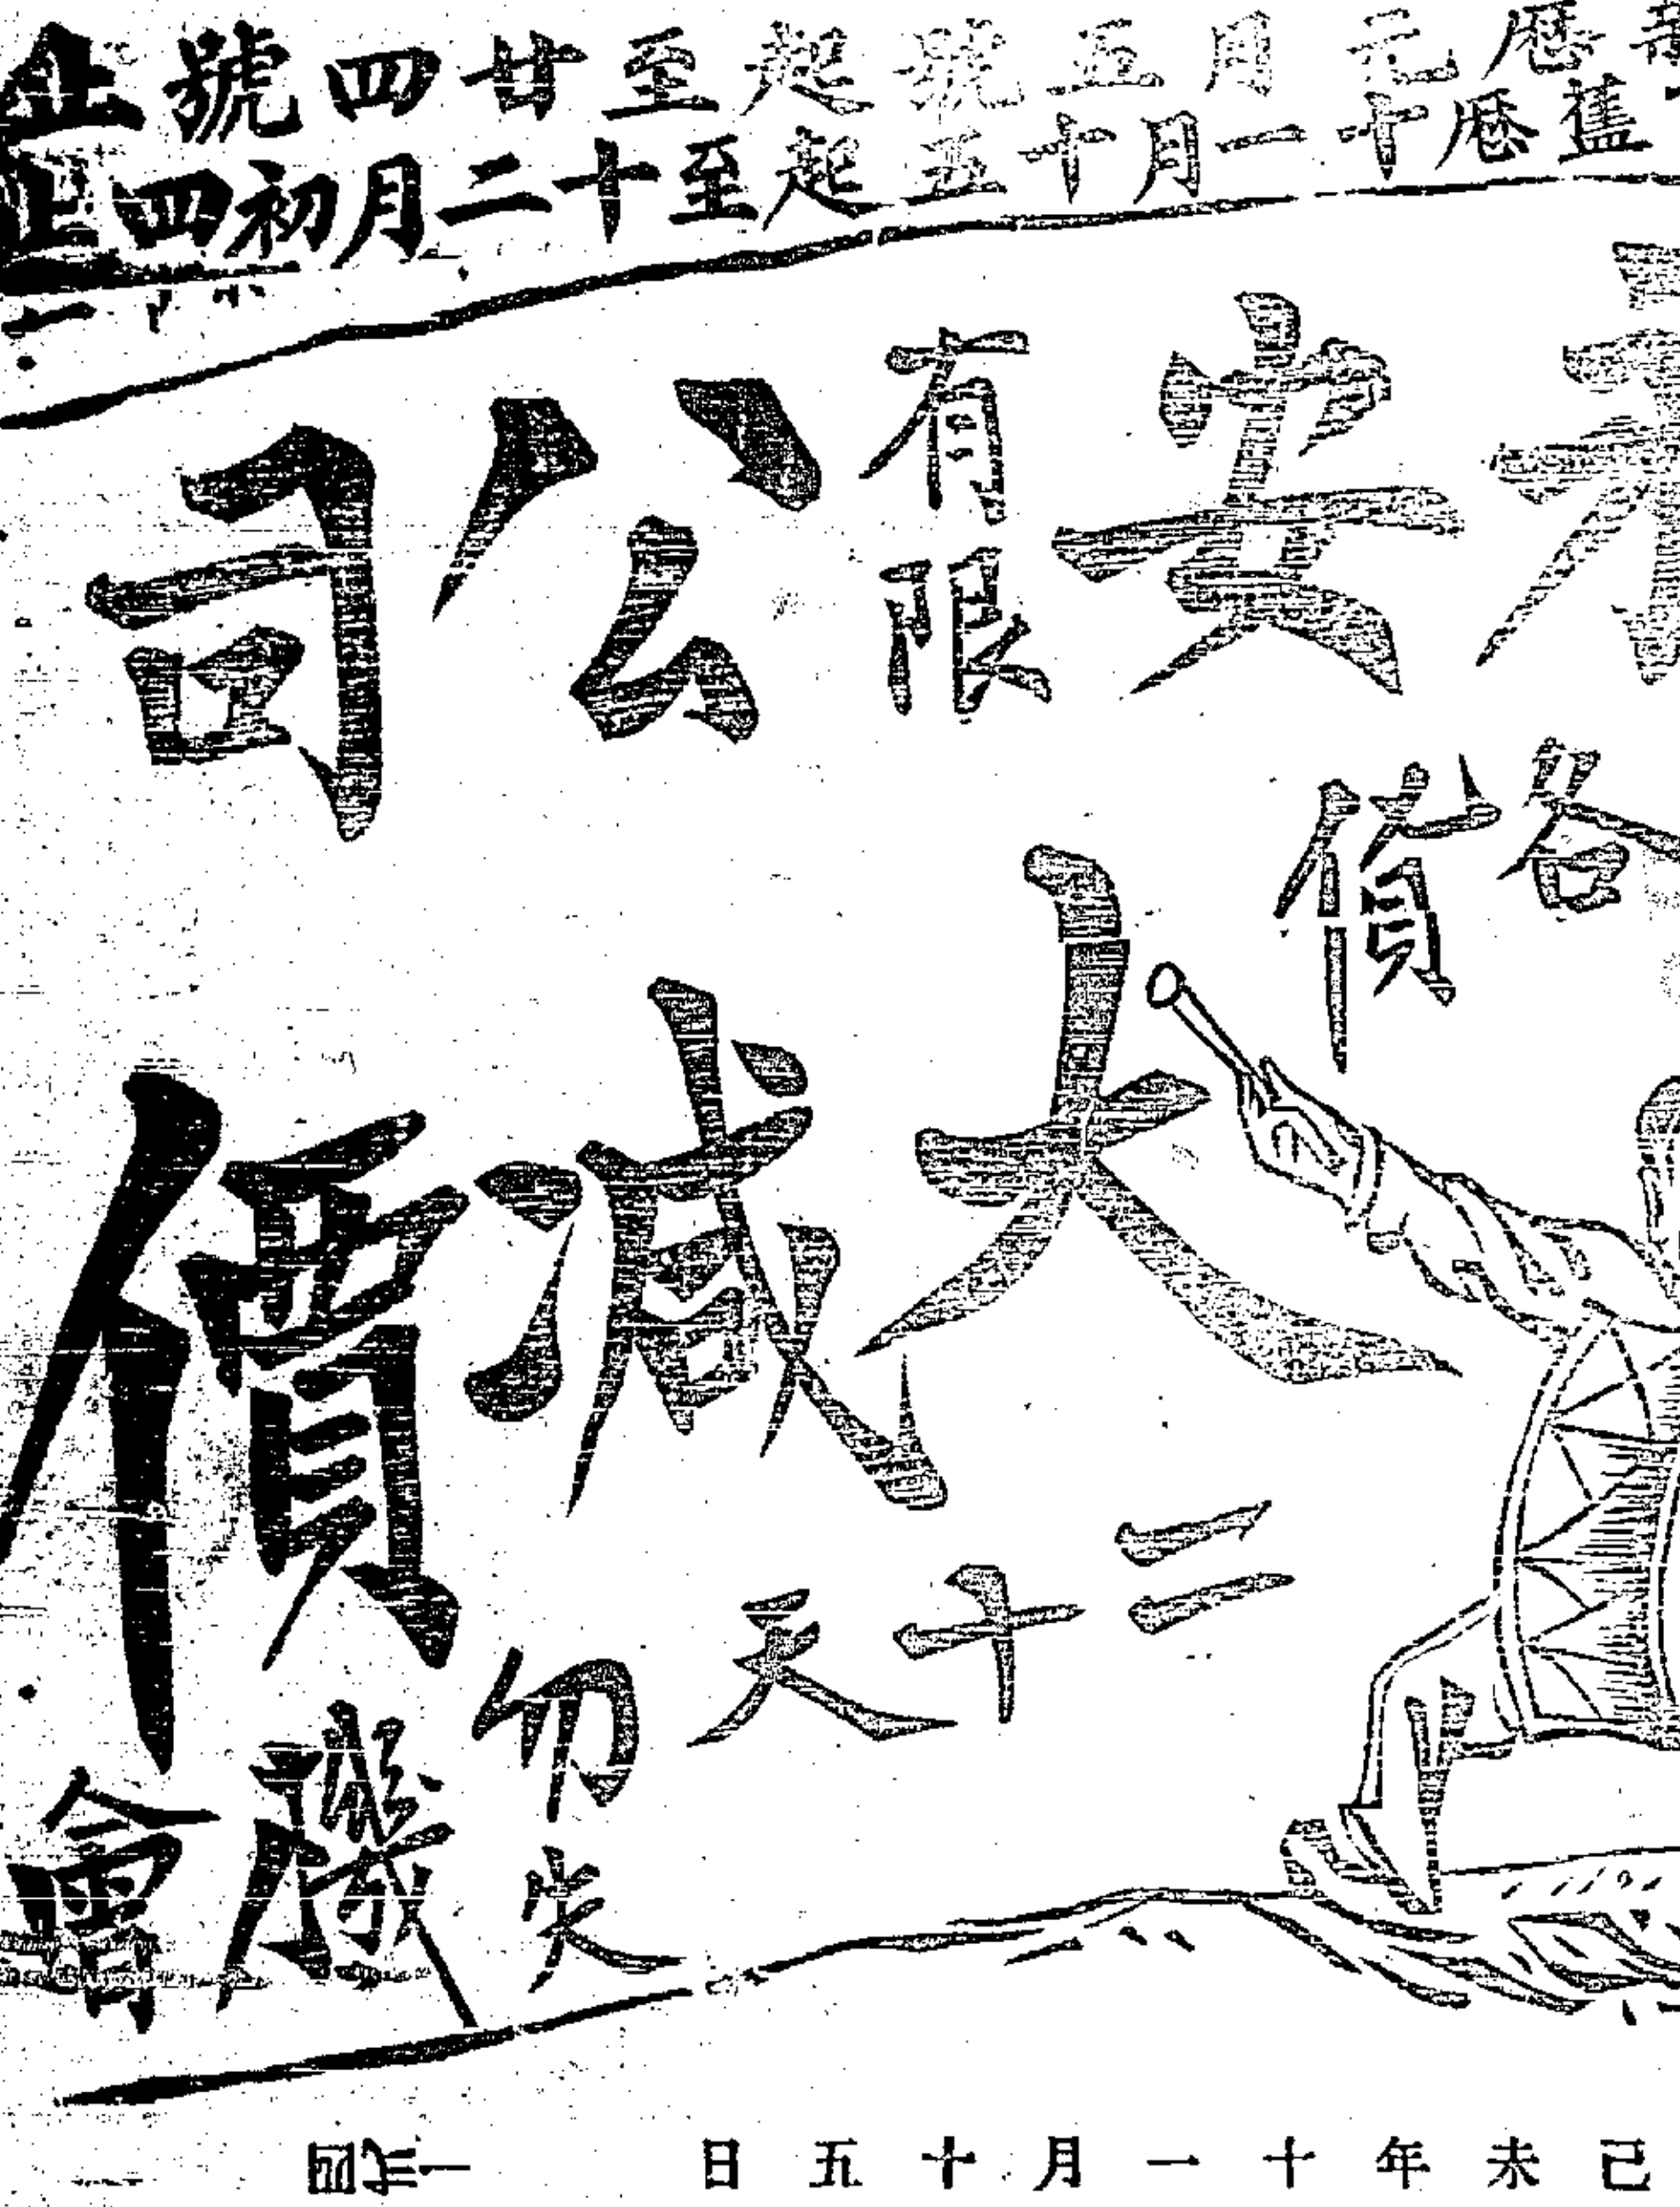 新曆元月五號起至廿四號止
舊曆十一月十五起至十二月初四止
永安有限公司
各貨
大減價
二十天
勿失機會
己未年十一月十五日